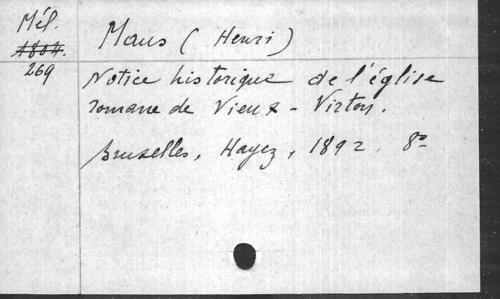 Mél.
1804.
269
Maus (Henri)
Notice historique de l'église
romane de Vieux-Virton.
Bruxelles, Hayez, 1892. 8º